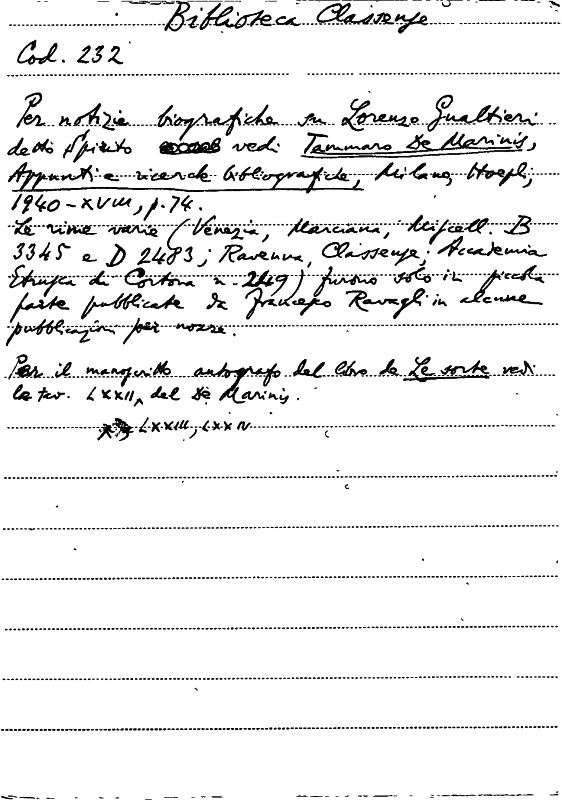 Biblioteca Classense
Cod. 232
Per notizie biografiche su Lorenzo Gualtieri
detto Spirito vedi Tammaro De Marinis,
Appunti e ricerche bibliografiche, Milano, Hoepli,
1940-XVIII, p. 74.
Le rime varie (Venezia, Marciana, Miscell. B
3345 e D 2483; Ravenna, Classense; Accademia
Etrusca di Cortona n. 249) furono solo in piccola
parte pubblicate da Francesco Ravagli in alcune
pubblicazioni per nozze.
Per il manoscritto autografo del libro de Le sorte vedi
le tav. LXXII, del De Marinis.
LXXIII, LXXIV